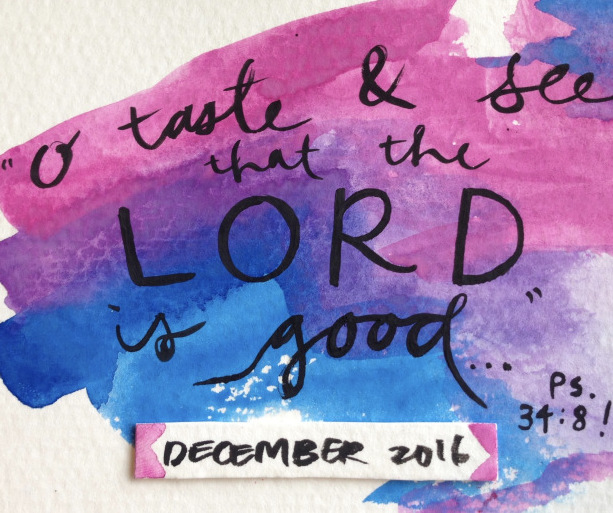 "O taste & see
that the
LORD
is good..."
Ps.
34:8!
DECEMBER 2016